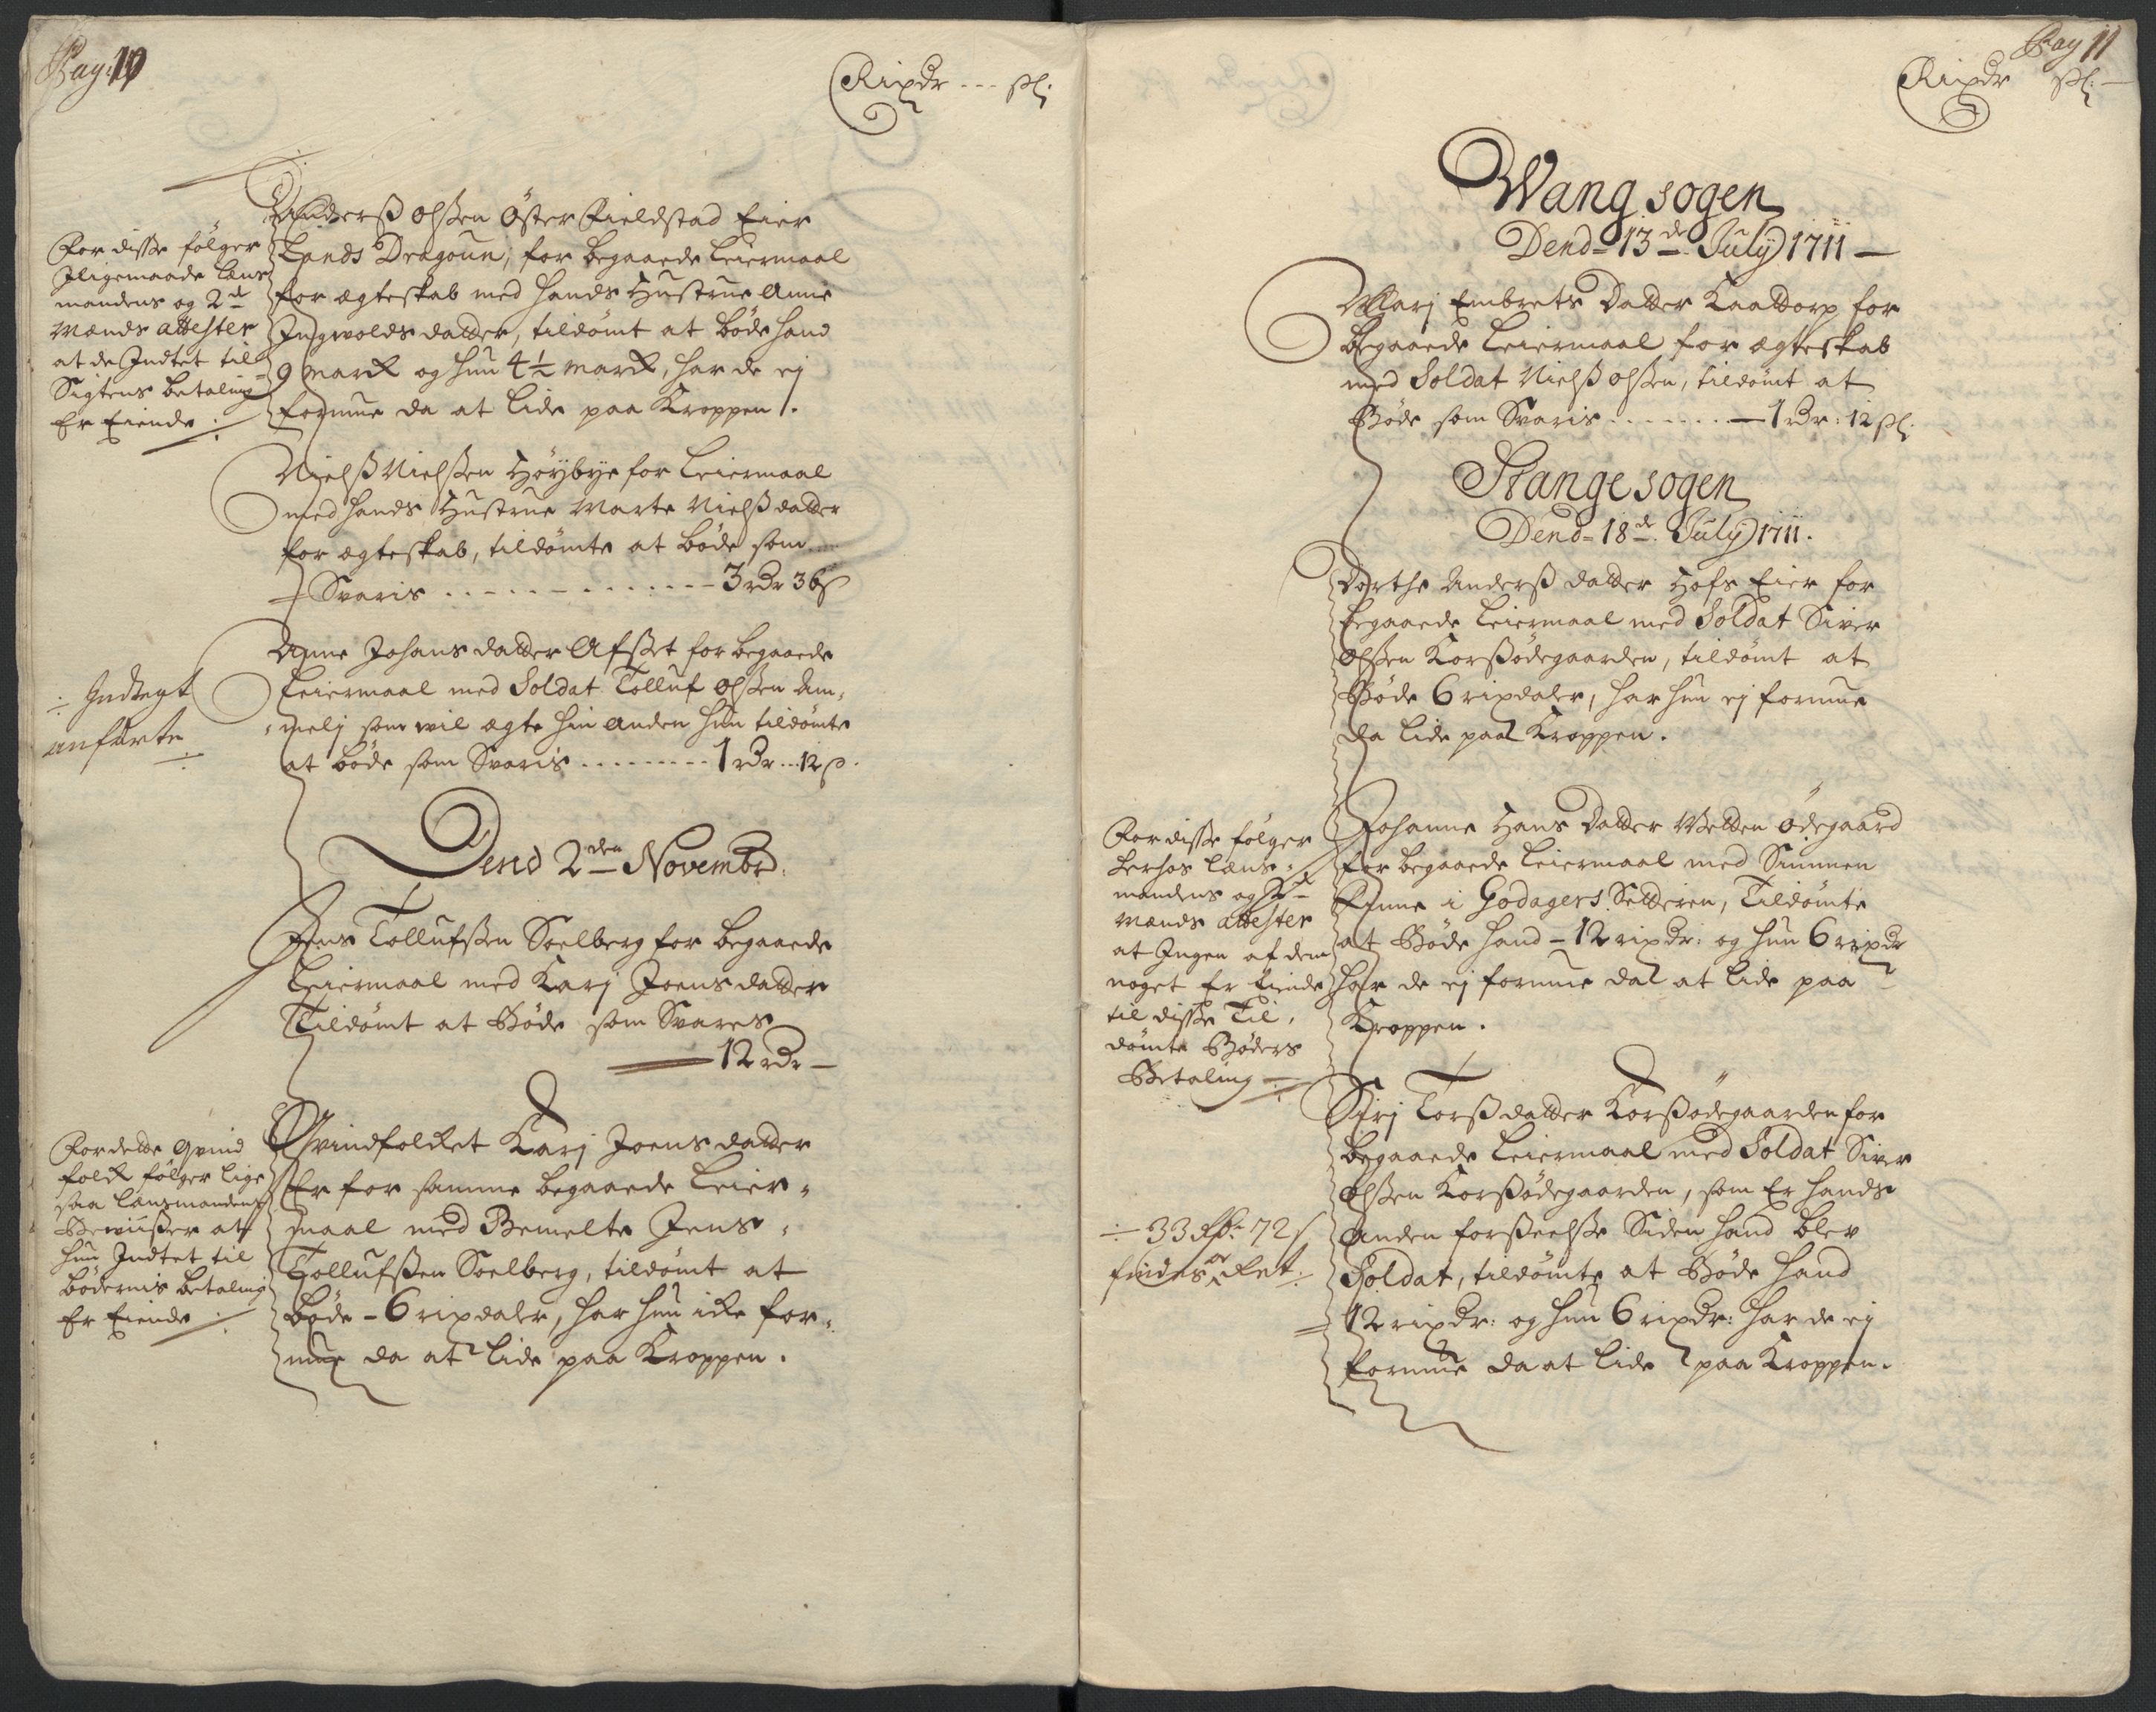 Pag: 10
Rixdr --- ſſl:
Anderß Olßen Öster Fieldstad Eier
Lands Dragoun, for begaaede Leiermaal
for ægteskab med hands Hustrue Anne
Ingwolds datter, tildömt at böde hand
9 marck og hun 4½ marck, har de ej
formue da at lide paa Kroppen.
For disse fölger
Iligemaade lens
mandens og 2de
mænds attester
at de Indtet til
Sigtens betaling
Er Eiende
Nielß Nielßen Höybye for Leiermaal
med hands Hustrue Marte Nielß datter
for ægteskab, tildömte at böde som
Svaris ------------- 3 rdr 36 ß
Anne Johans datter Afset for begaaede
Leiermaal med Soldat Tolluf Olßen Am-
melj som wil ægte hin anden hun tildömte
at böde som Svaris --------- 1 rdr --- 12 ß.
÷ Indtegt
anförte
Dend 2den Novembr:
Jens Tollufßen Soelberg for begaaede
Leiermaal med Karj Joens datter
Tildömt at Böde som Svares
12 rdr —
Qvindfolcket Karj Joens datter
Er for samme begaaede Leier-
maal med Bemelte Jens
Tollufßen Soelberg, tildömt at
böde - 6 rixdaler, har hun icke for-
mue da at lide paa Kroppen.
For dette Qvind
folck fölger lige
saa lensmandens
Bewiißer at
hun Indtet til
bödernis betaling
Er Eiende
Pag 11
Rixdr ſſl: —
Wang sogen
Dend 13de July 1711 —
Marj Embrets Datter Kaattorp for
begaaede Leiermaal for ægteskab
med Soldat Nielß Olßen, tildömt at
Böde som Svaris ------- 1 rdr: 12 ſſl:
Stange sogen
Dend 18de July 1711.
Dorthe Anderß datter Hofs Eier for
begaaede Leiermaal med Soldat Siver
Olßen Korßödegaarden, tildömt at
Böde 6 rixdaler, har hun ej formue
da lide paa Kroppen.
Johanne Hans Datter Wetten ödegaard
for begaaede Leiermaal med Simmen
Finne i Godagers Setteren, Tildömte
at Böde hand - 12 rixdr: og hun 6 rixdr
har de ej formue da at lide paa
Kroppen.
For disse fölger
herhos lens-
mandens og 2de
mænds attester
at Ingen af dem
noget Er Eiende
til disse Til-
dömte Böders
Betaling
Sirj Torß datter Korßödegaarden for
begaaede Leiermaal med Soldat Siver
Olßen Korßödegaarden, som Er hands
anden forßeelße Siden hand blev
Soldat, tildömte at Böde hand
12 rixdr: og hun 6 rixdr: har de ej
formue da at lide paa Kroppen.
÷ 33 Rdr 72 ß
findes Ret: